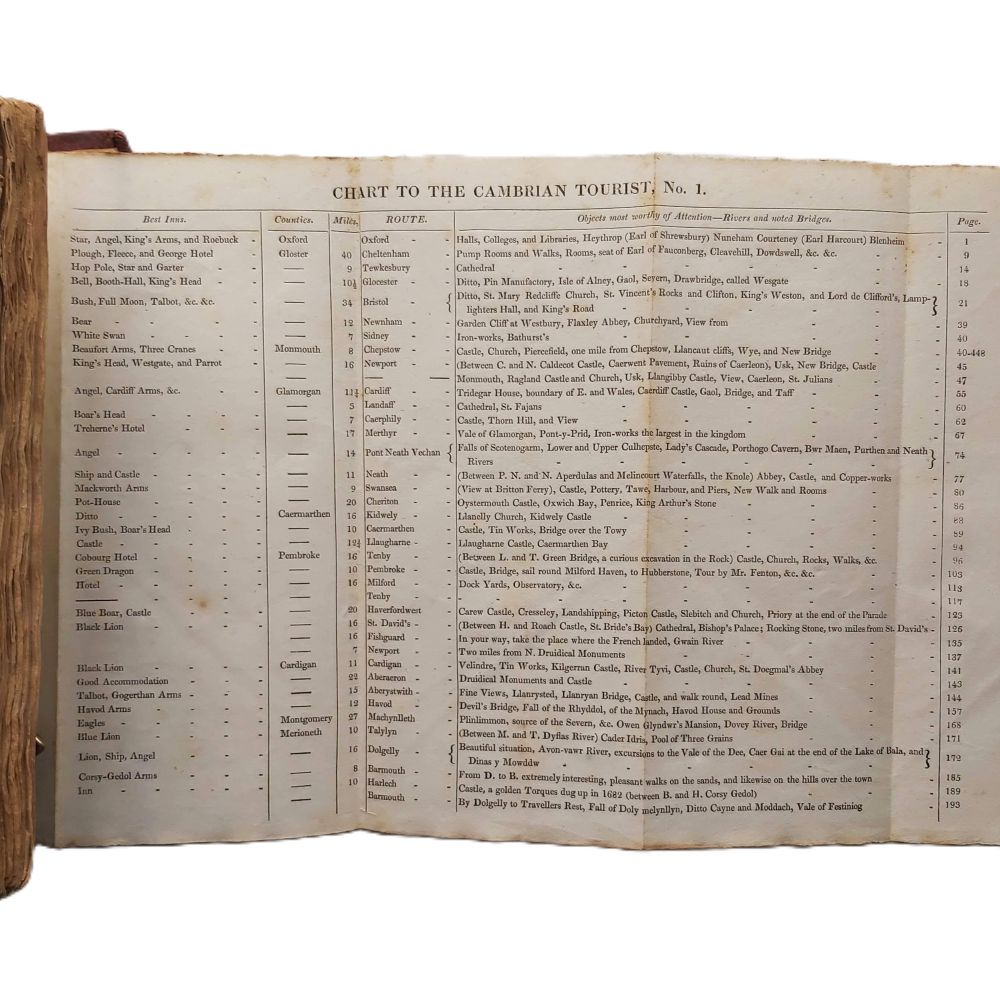 CHART TO THE CAMBRIAN TOURIST, No. 1.
Best Inns. Counties. Miles. ROUTE. Objects most worthy of Attention—Rivers and noted Bridges. Page.
Star, Angel, King's Arms, and Roebuck - Oxford Oxford - - Halls, Colleges, and Libraries, Heythrop (Earl of Shrewsbury) Nuneham Courteney (Earl Harcourt) Blenheim - 1
Plough, Fleece, and George Hotel - Gloster 40 Cheltenham - Pump Rooms and Walks, Rooms, seat of Earl of Fauconberg, Cleavehill, Dowdswell, &c. &c. - - - 9
Hop Pole, Star and Garter - - - — 9 Tewkesbury - Cathedral - - - - - - - 14
Bell, Booth-Hall, King's Head - - — 10½ Glocester - - Ditto, Pin Manufactory, Isle of Alney, Gaol, Severn, Drawbridge, called Wesgate - - - 18
Bush, Full Moon, Talbot, &c. &c. - - — 34 Bristol - { Ditto, St. Mary Redcliffe Church, St. Vincent's Rocks and Clifton, King's Weston, and Lord de Clifford's, Lamp- } 21
lighters Hall, and King's Road - - - - -
Bear - - - - - — 12 Newnham - - Garden Cliff at Westbury, Flaxley Abbey, Churchyard, View from - - - - 39
White Swan - - - - — 7 Sidney - - Iron-works, Bathurst's - - - - - - 40
Beaufort Arms, Three Cranes - - Monmouth 8 Chepstow - - Castle, Church, Piercefield, one mile from Chepstow, Llancaut cliffs, Wye, and New Bridge - - 40-448
King's Head, Westgate, and Parrot - — 16 Newport - - (Between C. and N. Caldecot Castle, Caerwent Pavement, Ruins of Caerleon), Usk, New Bridge, Castle - 45
— — Monmouth, Ragland Castle and Church, Usk, Llangibby Castle, View, Caerleon, St. Julians - - 47
Angel, Cardiff Arms, &c. - - - Glamorgan 11½ Cardiff - - Tridegar House, boundary of E. and Wales, Caerdiff Castle, Gaol, Bridge, and Taff - - - 55
— 5 Landaff - - Cathedral, St. Fajans - - - - - - 60
Boar's Head - - - - — 7 Caerphily - - Castle, Thorn Hill, and View - - - - - 62
Treherne's Hotel - - - — 17 Merthyr - - Vale of Glamorgan, Pont-y-Prid, Iron-works the largest in the kingdom - - - - 67
Angel - - - - - — 14 Pont Neath Vechan { Falls of Scotenogarm, Lower and Upper Culhepste, Lady's Cascade, Porthogo Cavern, Bwr Maen, Purthen and Neath } 74
Rivers - - - - - - -
Ship and Castle - - - - — 11 Neath - - (Between P. N. and N. Aperdulas and Melincourt Waterfalls, the Knole) Abbey, Castle, and Copper-works - 77
Mackworth Arms - - - - — 9 Swansea - - (View at Britton Ferry), Castle, Pottery, Tawe, Harbour, and Piers, New Walk and Rooms - - 80
Pot-House - - - - — 20 Cheriton - - Oystermouth Castle, Oxwich Bay, Penrice, King Arthur's Stone - - - - 86
Ditto - - - - - Caermarthen 16 Kidwely - - Llanelly Church, Kidwely Castle - - - - - 88
Ivy Bush, Boar's Head - - - — 10 Caermarthen - Castle, Tin Works, Bridge over the Towy - - - - - 89
Castle - - - - - — 12½ Llaugharne - - Llaugharne Castle, Caermarthen Bay - - - - - 94
Cobourg Hotel - - - - Pembroke 16 Tenby - - (Between L. and T. Green Bridge, a curious excavation in the Rock) Castle, Church, Rocks, Walks, &c. - 96
Green Dragon - - - - — 10 Pembroke - - Castle, Bridge, sail round Milford Haven, to Hubberstone, Tour by Mr. Fenton, &c. &c. - - 103
Hotel - - - - - — 16 Milford - - Dock Yards, Observatory, &c. - - - - - 113
— - - - - — Tenby - - - - - - - - 117
Blue Boar, Castle - - - — 20 Haverfordwest - Carew Castle, Cresseley, Landshipping, Picton Castle, Slebitch and Church, Priory at the end of the Parade - 123
Black Lion - - - - — 16 St. David's - - (Between H. and Roach Castle, St. Bride's Bay) Cathedral, Bishop's Palace; Rocking Stone, two miles from St. David's - 126
— 16 Fishguard - In your way, take the place where the French landed, Gwain River - - - - 135
— 7 Newport - - Two miles from N. Druidical Monuments - - - - - 137
Black Lion - - - - Cardigan 11 Cardigan - - Velindre, Tin Works, Kilgerran Castle, River Tyvi, Castle, Church, St. Doegmal's Abbey - - 141
Good Accommodation - - - — 22 Aberaeron - Druidical Monuments and Castle - - - - - 143
Talbot, Gogerthan Arms - - - — 15 Aberystwith - - Fine Views, Llanrysted, Llanryan Bridge, Castle, and walk round, Lead Mines - - - 144
Havod Arms - - - - — 12 Havod - - Devil's Bridge, Fall of the Rhyddol, of the Mynach, Havod House and Grounds - - - 157
Eagles - - - - - Montgomery 27 Machynlleth - Plinlimmon, source of the Severn, &c. Owen Glyndwr's Mansion, Dovey River, Bridge - - 168
Blue Lion - - - - Merioneth 10 Talylyn - - (Between M. and T. Dyflas River) Cader Idris, Pool of Three Grains - - - - 171
Lion, Ship, Angel - - - — 16 Dolgelly - { Beautiful situation, Avon-vawr River, excursions to the Vale of the Dee, Caer Gai at the end of the Lake of Bala, and } 172
Dinas y Mowddw - - - - - -
Corsy-Gedol Arms - - - — 8 Barmouth - - From D. to B. extremely interesting, pleasant walks on the sands, and likewise on the hills over the town - 185
Inn - - - - - — 10 Harlech - - Castle, a golden Torques dug up in 1682 (between B. and H. Corsy Gedol) - - - 189
— Barmouth - - By Dolgelly to Travellers Rest, Fall of Doly melynllyn, Ditto Cayne and Moddach, Vale of Festiniog - 193